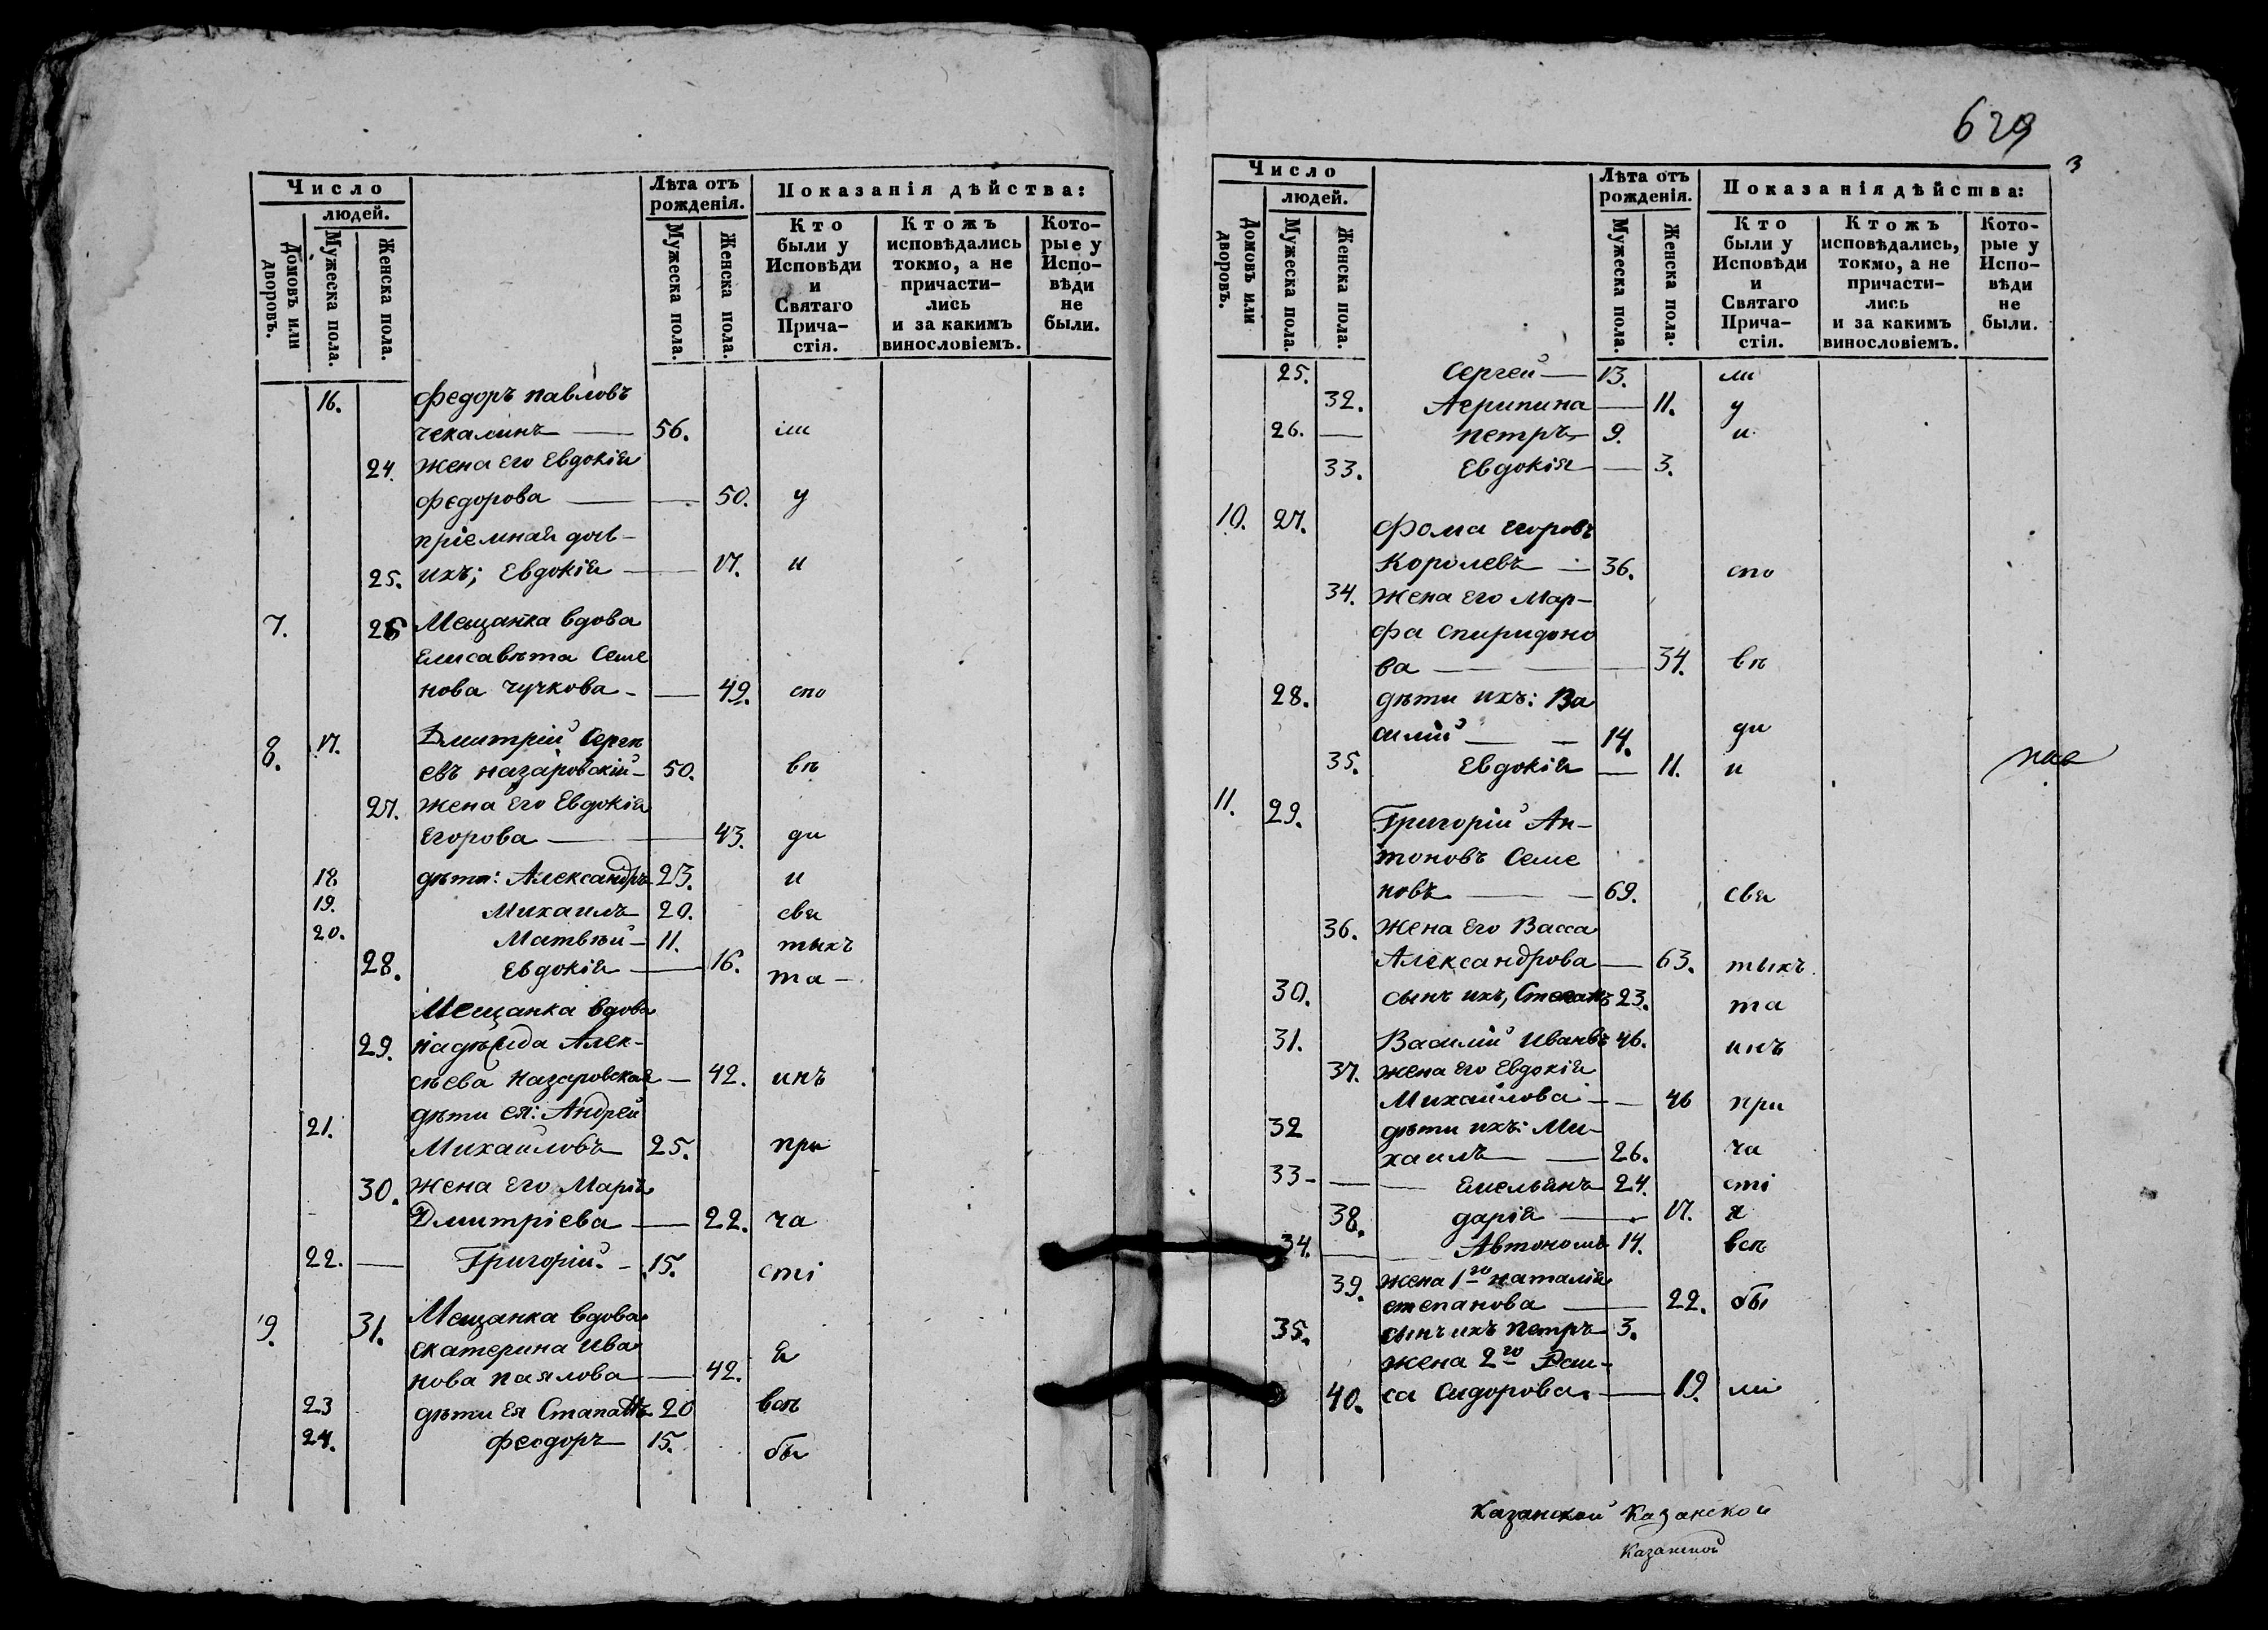 Число
людей.
Домовъ или дворовъ.
Мужеска пола.
Женска пола.
Лѣта отъ рожденія.
Мужеска пола.
Женска пола.
Показанія дѣйства:
Кто были у Исповѣди и Святаго Прича-стія.
Ктожъ исповѣдались токмо, а не причасти-лись и за какимъ винословіемъ.
Кото-рые у Испо-вѣди не были.
16. Федоръ Павловъ
Чекалинъ — 56. ли
24. жена его Евдокія
Федорова — 50. у
пріемная дочь
25. ихъ; Евдокія — 17. и
7. 26 Мещанка вдова
Елисавѣта Семе
нова Чучкова — 49. спо
8. 17. Дмитрій Сергѣ
евъ Назаровскій — 50. вѣ
27. жена его Евдокія
Егорова — 43. ди
18 дѣти: Александръ 23. и
19. Михаилъ 20. свя
20. Матвѣй — 11. тыхъ
28. Евдокія — 16. та —
Мещанка вдова
29. Надѣжда Алек-
сѣева Назаровская — 42. инъ
21. дѣти ея: Андрей
Михайловъ 25. при
30. жена его Марія
Дмитріева — 22. ча
22. — Григорій. — 15. сті
9. 31. Мещанка вдова
Екатерина Ива
нова Паялова — 42. я
23 дѣти ея Стапанъ 20 всѣ
24. Феодоръ — 15. бы
629
3
Число
людей.
Домовъ или дворовъ.
Мужеска пола.
Женска пола.
Лѣта отъ рожденія.
Мужеска пола.
Женска пола.
Показанія дѣйства:
Кто были у Исповѣди и Святаго Прича-стія.
Ктожъ исповѣдались, токмо, а не причасти-лись и за какимъ винословіемъ.
Кото-рые у Испо-вѣди не были.
25. Сергей — 13. ли
32. Агрипина — 11. у
26. — Петръ 9. и
33. Евдокія — 3.
10. 27. Фома Егоровъ
Королевъ — 36. спо
34. Жена его Мар-
фа Спиридоно
ва — 34. вѣ
28. дѣти ихъ: Ва
силій — 14. ди
35. Евдокія — 11. и
11. 29. Григорій Ан-
тоновъ Семе
новъ — 69. свя
36. Жена его Васса
Александрова — 63. тыхъ
30. сынъ ихъ, Степанъ 23. та
31. Василій Ивановъ 46. инъ
37. жена его Евдокія
Михайлова — 46 при
32 дѣти ихъ: Ми-
хаилъ — 26. ча
33 — Емельянъ 24. сті
38. Дарія — 17. я
34. — Автономъ 14. всѣ
39. жена 1го Наталія
Степанова — 22. бы
35. сынъ ихъ Петръ 3.
жена 2го Раи-
40. са Сидорова. — 19. ли
Казанской Казанской
Казанской